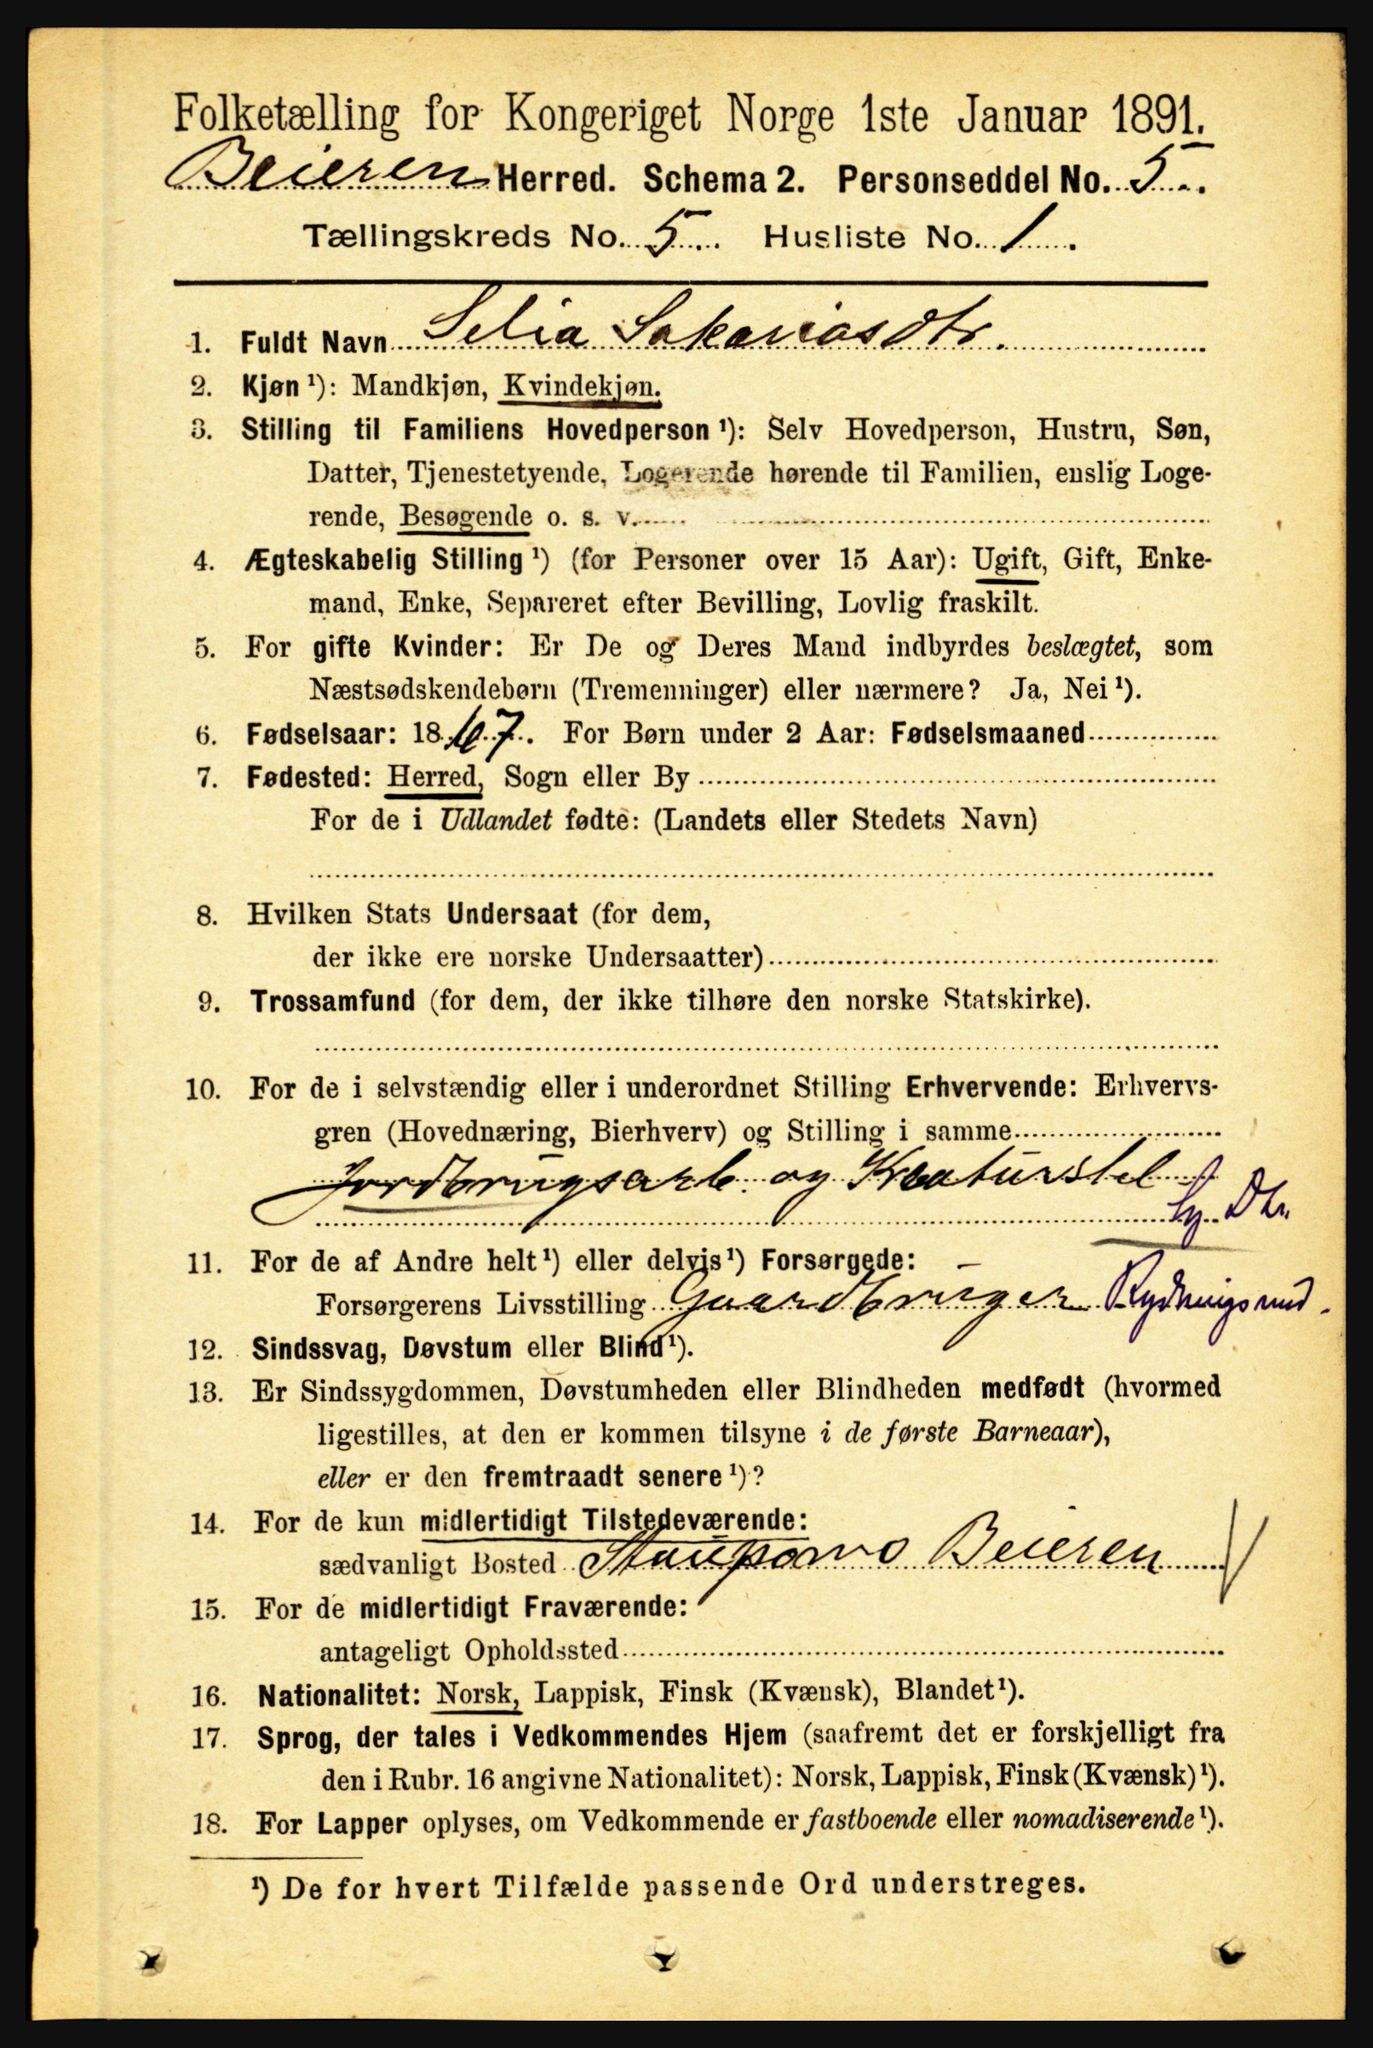 Folketælling for Kongeriget Norge 1ste Januar 1891.
Beieren Herred. Schema 2. Personseddel No. 5
Tællingskreds No. 5 Husliste No. 1
1. Fuldt Navn Selia Sakariasdtr.
2. Kjøn ¹): Mandkjøn, Kvindekjøn.
3. Stilling til Familiens Hovedperson ¹): Selv Hovedperson, Hustru, Søn,
Datter, Tjenestetyende, Logerende hørende til Familien, enslig Loge-
rende, Besøgende o. s. v.
4. Ægteskabelig Stilling ¹) (for Personer over 15 Aar): Ugift, Gift, Enke-
mand, Enke, Separeret efter Bevilling, Lovlig fraskilt.
5. For gifte Kvinder: Er De og Deres Mand indbyrdes beslægtet, som
Næstsødskendebørn (Tremenninger) eller nærmere? Ja, Nei ¹).
6. Fødselsaar: 1867. For Børn under 2 Aar: Fødselsmaaned
7. Fødested: Herred, Sogn eller By
For de i Udlandet fødte: (Landets eller Stedets Navn)
8. Hvilken Stats Undersaat (for dem,
der ikke ere norske Undersaatter)
9. Trossamfund (for dem, der ikke tilhøre den norske Statskirke).
10. For de i selvstændig eller i underordnet Stilling Erhvervende: Erhvervs-
gren (Hovednæring, Bierhverv) og Stilling i samme
Jordbrugsarb. og Kreaturstel
Dtr.
11. For de af Andre helt ¹) eller delvis ¹) Forsørgede:
Forsørgerens Livsstilling Gaardbruger
12. Sindssvag, Døvstum eller Blind ¹).
13. Er Sindssygdommen, Døvstumheden eller Blindheden medfødt (hvormed
ligestilles, at den er kommen tilsyne i de første Barneaar),
eller er den fremtraadt senere ¹)?
14. For de kun midlertidigt Tilstedeværende:
sædvanligt Bosted Beieren
15. For de midlertidigt Fraværende:
antageligt Opholdssted
16. Nationalitet: Norsk, Lappisk, Finsk (Kvænsk), Blandet ¹).
17. Sprog, der tales i Vedkommendes Hjem (saafremt det er forskjelligt fra
den i Rubr. 16 angivne Nationalitet): Norsk, Lappisk, Finsk (Kvænsk) ¹).
18. For Lapper oplyses, om Vedkommende er fastboende eller nomadiserende ¹).
¹) De for hvert Tilfælde passende Ord understreges.